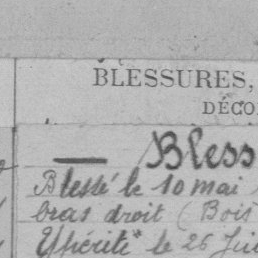 BLESSURES,
DÉCO
— Bless
Blessé le 10 mai
bras droit (Bois
le 26 Jui